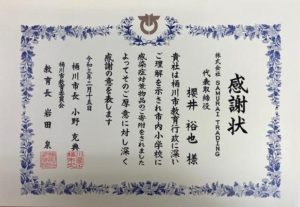 感謝状
株式会社 SAMURAI TRADING
代表取締役
櫻井裕也 様
貴社は桶川市教育行政に深い
ご理解を示され市内小学校に
感染症対策物品のご寄附をされました
よってそのご厚意に対し深く
感謝の意を表します
令和三年二月十五日
桶川市長 小野克典
桶川市教育委員会
教育長 岩田泉